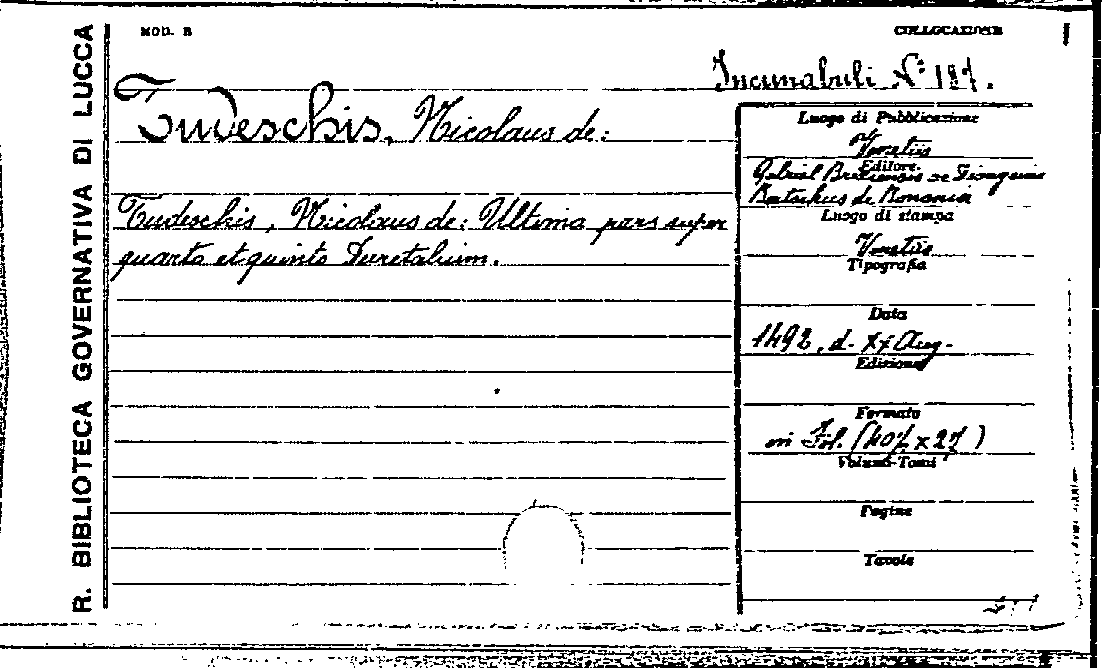 R. BIBLIOTECA GOVERNATIVA DI LUCCA
MOD. B
COLLOCAZIONE
Incunabuli N° 187.
Tudeschis, Nicolaus de:
Tudeschis, Nicolaus de: Ultima pars super
quarto et quinto Decretalium.
Luogo di Pubblicazione
Venetiis
Editore.
Gabriel Brixiensis
de Bononia
Luogo di stampa
Venetiis
Tipografia
Data
1492, d. XX Aug.
Edizione
Formato
in Fol. (407 x 27)
Volume-Tomi
Pagine
Tavole